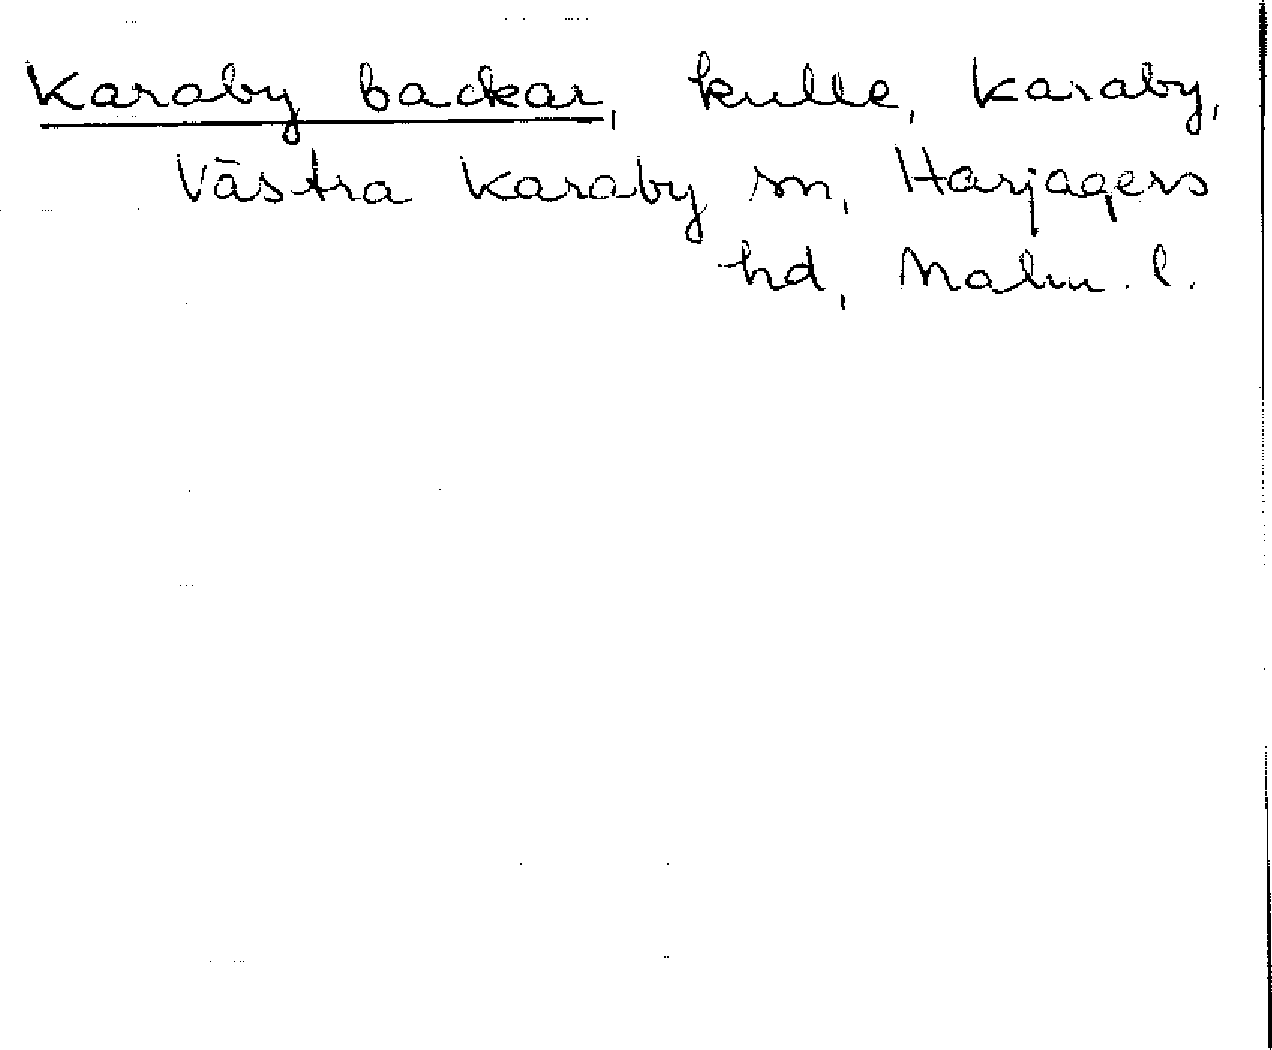 Karaby backar, kulle, Karaby,
Västra Karaby sn, Harjagers
hd, Malm. l.